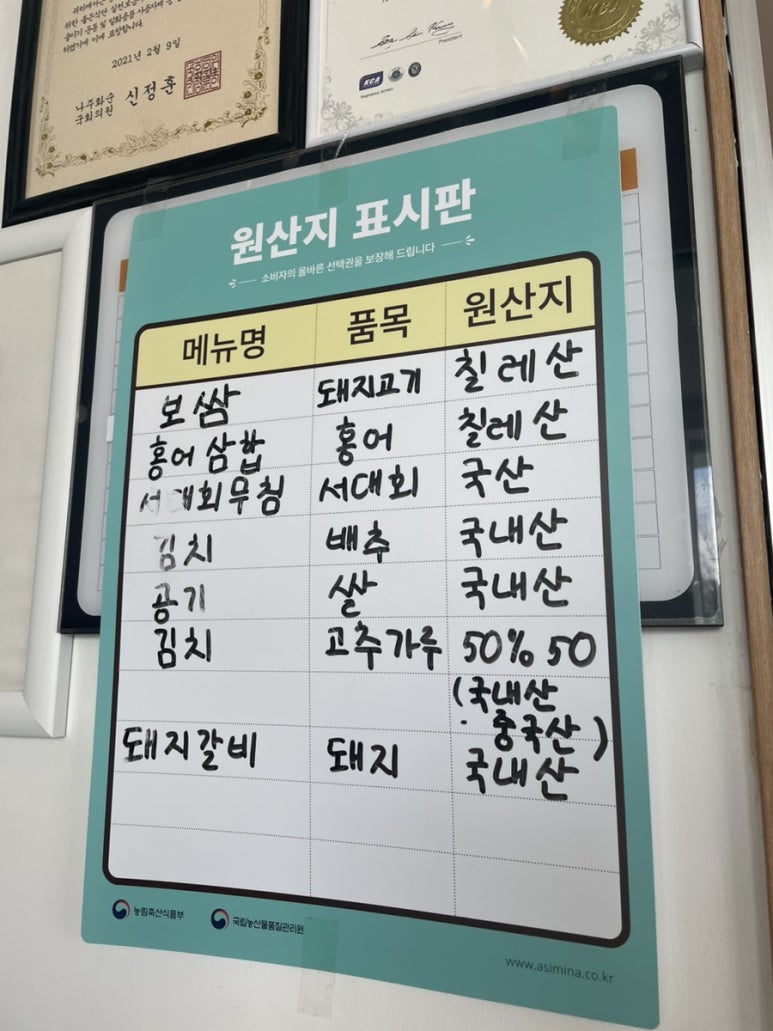 위한
2021년 2월 9일
나주화순
국회의원 신정훈
President
KCA
원산지 표시판
소비자의 올바른 선택권을 보장해 드립니다
메뉴명 품목 원산지
보쌈 돼지고기 칠레산
홍어삼합 홍어 칠레산
서대회무침 서대회 국산
김치 배추 국내산
공기 쌀 국내산
김치 고추가루 50% 50
(국내산
· 중국산)
돼지갈비 돼지 국내산
농림축산식품부 국립농산물품질관리원
www.asimina.co.kr